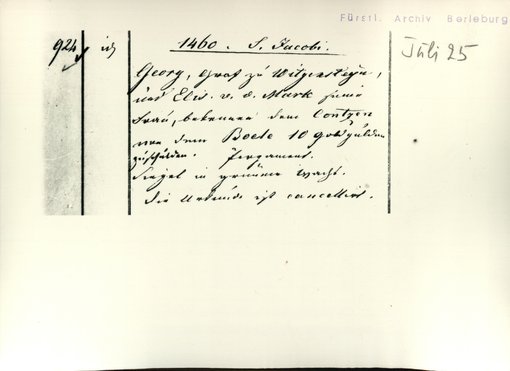 Fürstl. Archiv Berleburg
924 id 1460. S. Jacobi. Juli 25
Georg, Graf zu Witgensteyn,
und Elis. v. d. Mark seine
Frau, bekennen dem Contzen
von dem Boele 10 goldgulden
zu schulden. Pergament.
Siegel in grünem Wachs.
Die Urkunde ist cancellirt.